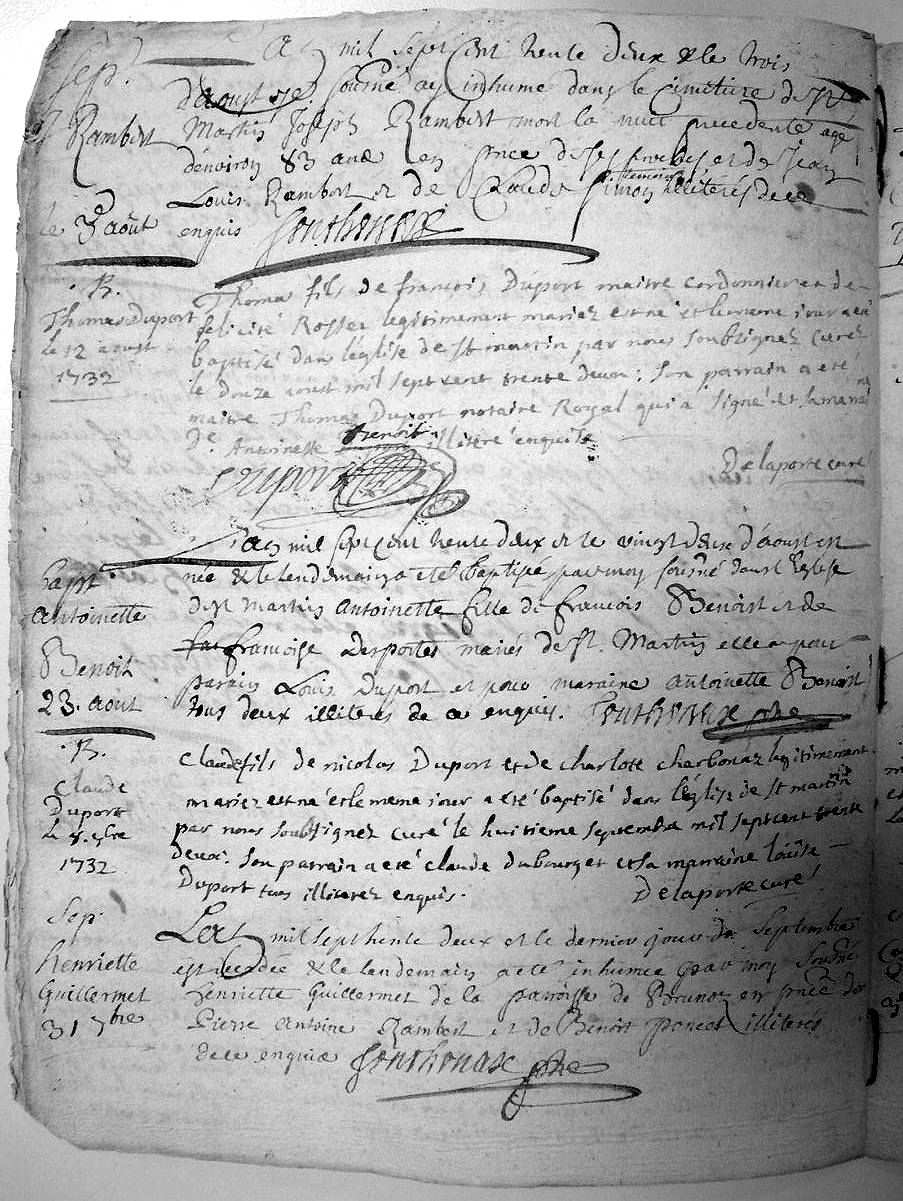 Sep.
J. Rambert
le 3e aout
mil sept cent trente deux & le trois
d'aoust je sousné ay inhumé dans le Cimetiere de St
Martin Joseph Rambert mort la nuit precedente agé
d'environ 83 ans en pnce de et de Jean
Louis Rambert & de Claude Simon temoins illiterés de ce
enquis Fonthonax
. B.
Thomas Duport
le 12 aoust
1732
Thoma fils de francois Duport maitre cordonnier et de
felicité Rosset legitimement mariez est né et le meme jour a eté
baptisé dans l'église de St martin par nous soubsignez curez
le douze aoust mil sept cent trente deux : son parrain a eté
maitre Thomas Duport notaire Royal qui a signé et sa marai
ne
De. Antoinette Benoit illitré enquise
Delaporte curé
Duport
Bapt.
Antoinette
Benoit
23. aout
L'an mil sept cent trente deux & le vingt deux d'aoust est
née & le lendemain a eté baptisée par moy sousné dans l'Eglise
de St Martin Antoinette fille de francois Benoist & de
francoise Desportes mariés de St. Martin elle a pour
parain Louis Duport et pour maraine Antoinette Benoist
tous deux illiterés de ce enquis. Fonthonax ptre
. B.
Claude
Duport
le 8. 7bre
1732
Claude fils de nicolas Duport et de charlotte charbonaz legitimement
mariez est né et le meme jour a eté baptisé dans l'église de St martin
par nous soubsignez curé le huitieme septembre mil sept cent trente
deux. son parrain a eté claude dubourget et sa marraine louise
Duport tous illiterez enquis. Delaporte curé
Sep.
henriette
Guillermet
31 7bre
L'an mil sept trente deux et le dernier jour de Septembre
est decedée & le lendemain a eté inhumée par moy sousné
henriette Guillermet de la parroisse de en pnce de
Pierre Antoine Rambert et de Benoit poncet illiterés
de ce enquis Fonthonax ptre